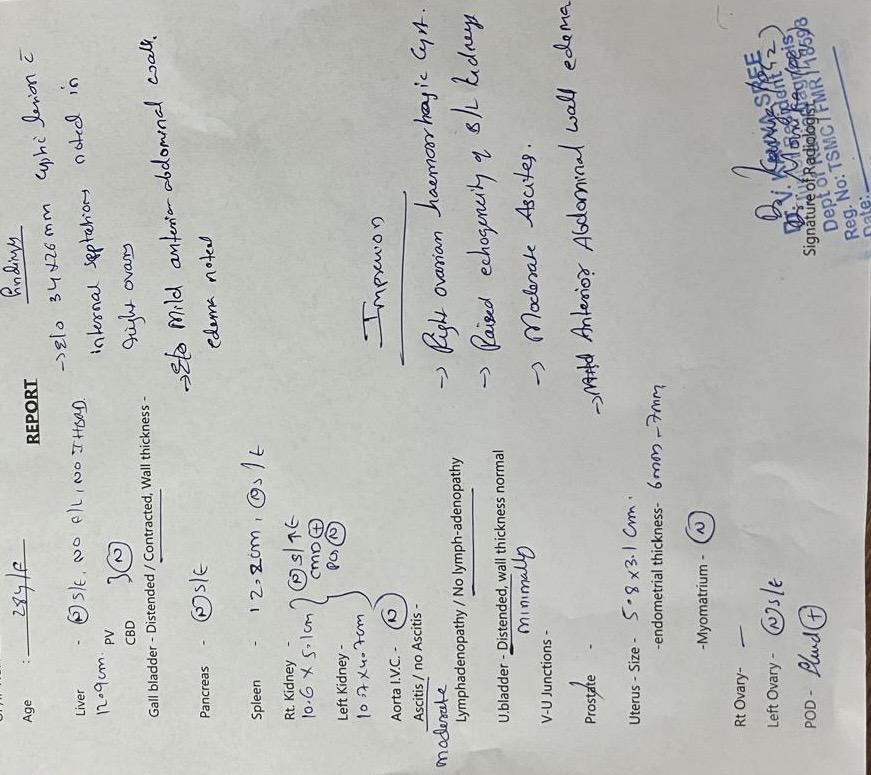 Age : 28y/F
REPORT
Liver - (N) S/E, NO F/L, NO IHBRD
12.9cm. PV
CBD } (N)
Gall bladder - Distended / Contracted, Wall thickness -
Pancreas - (N) S/E
Spleen - 12.2cm, (N) S/E
Rt. Kidney - (N) S/↑E
10.6 x 5.1cm CMD (+)
Left Kidney - PCS (N)
10.7x4.7cm
Aorta I.V.C. - (N)
Ascitis / no Ascitis -
moderate
Lymphadenopathy / No lymph-adenopathy
U.bladder - Distended, wall thickness normal
minimally
V-U Junctions -
Prostate -
Uterus - Size - 5.8 x 3.1 cm.
-endometrial thickness- 6mm - 7mm
-Myomatrium - (N)
Rt Ovary- —
Left Ovary - (N) S/E
POD - Fluid (+)
Findings
→ E/o 34x26mm cystic lesion c̄
internal septations noted in
right ovary
→ E/o Mild anterior abdominal wall
edema noted
Impression
→ Right ovarian haemorrhagic cyst.
→ Raised echogenicity of B/L kidneys
→ Moderate Ascites.
→ Mild Anterior Abdominal wall edema
Signature of Radiologist
Dept of
Reg. No: TSMC / FMR / 18593
Date: